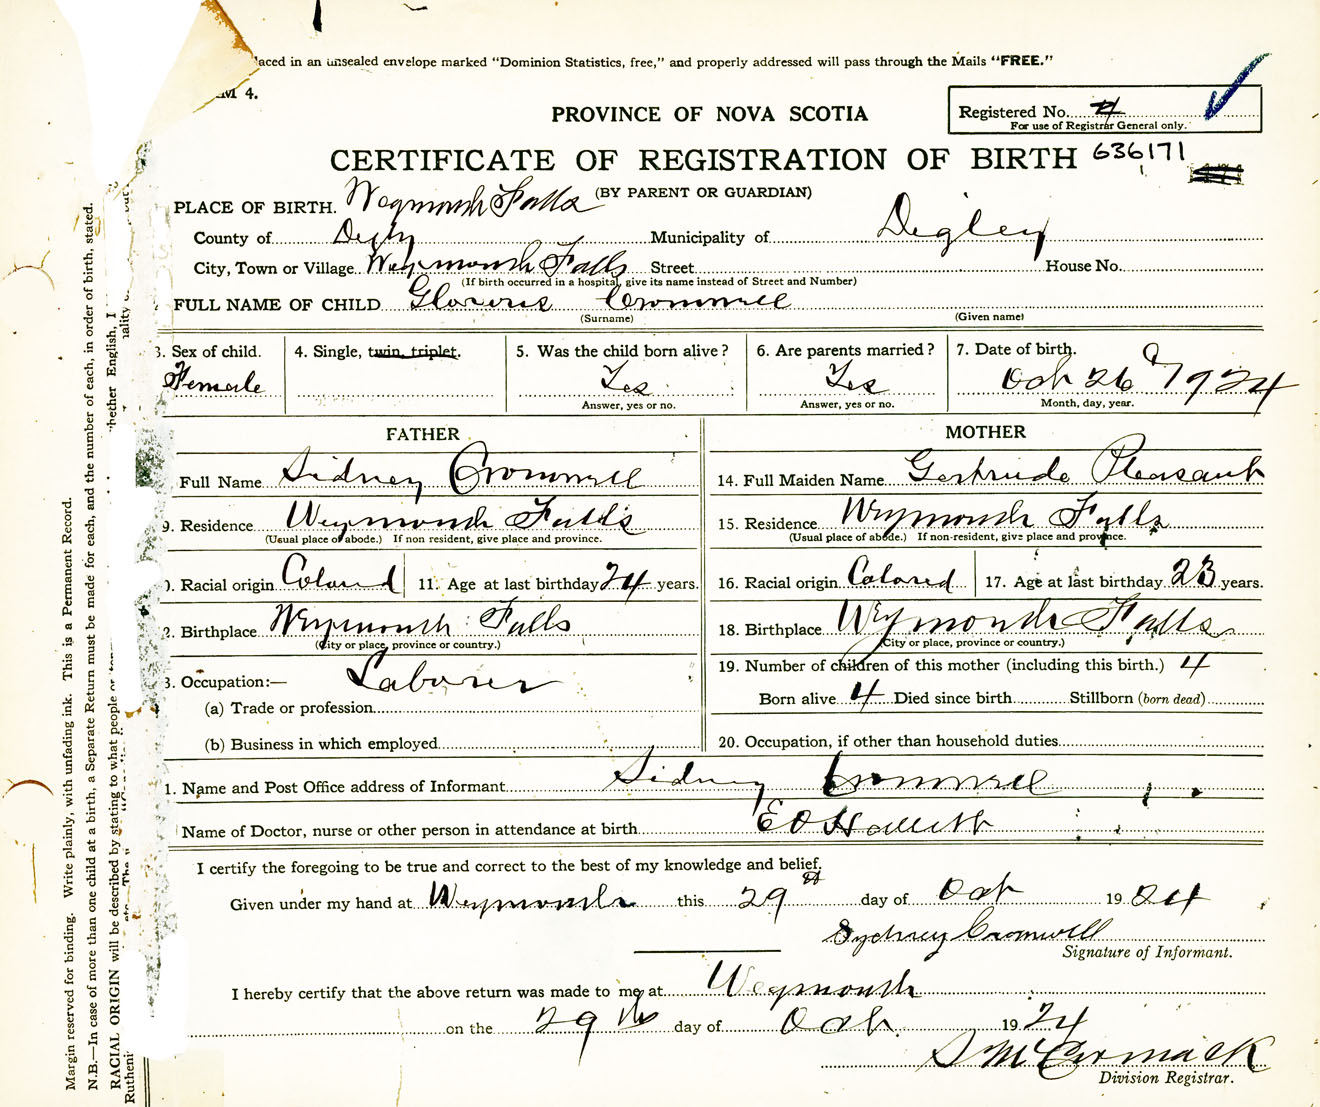 laced in an unsealed envelope marked "Dominion Statistics, free," and properly addressed will pass through the Mails "FREE."
M 4.
PROVINCE OF NOVA SCOTIA
Registered No. 4
For use of Registrar General only.
CERTIFICATE OF REGISTRATION OF BIRTH 636171
(BY PARENT OR GUARDIAN)
PLACE OF BIRTH. Weymouth Falls
County of Digby Municipality of Digley
City, Town or Village Weymouth Falls Street House No.
(If birth occurred in a hospital, give its name instead of Street and Number)
FULL NAME OF CHILD Cromwell
(Surname) (Given name)
3. Sex of child. 4. Single, twin, triplet. 5. Was the child born alive? 6. Are parents married? 7. Date of birth.
Female Yes Yes Oct 26 1924
Answer, yes or no. Answer, yes or no. Month, day, year.
FATHER MOTHER
Full Name Sidney Cromwell 14. Full Maiden Name Gertrude Pleasant
9. Residence Weymouth Falls 15. Residence Weymouth Falls
(Usual place of abode.) If non resident, give place and province. (Usual place of abode.) If non-resident, give place and province.
0. Racial origin Colored 11. Age at last birthday 24 years. 16. Racial origin Colored 17. Age at last birthday 23 years.
2. Birthplace Weymouth Falls 18. Birthplace Weymouth Falls
(City or place, province or country.) (City or place, province or country.)
3. Occupation:— Laborer 19. Number of children of this mother (including this birth.) 4
(a) Trade or profession Born alive 4 Died since birth Stillborn (born dead)
(b) Business in which employed 20. Occupation, if other than household duties
1. Name and Post Office address of Informant Sidney Cromwell
Name of Doctor, nurse or other person in attendance at birth E O Hallett
I certify the foregoing to be true and correct to the best of my knowledge and belief.
Given under my hand at Weymouth this 29 day of Oct 1924
Sydney Cromwell
Signature of Informant.
I hereby certify that the above return was made to me at Weymouth
on the 29th day of Oct 1924
S McCormack
Division Registrar.
Margin reserved for binding. Write plainly, with unfading ink. This is a Permanent Record.
N.B.—In case of more than one child at a birth, a Separate Return must be made for each, and the number of each, in order of birth, stated.
RACIAL ORIGIN will be described by stating to what people or hether English, I
Rutheni ality